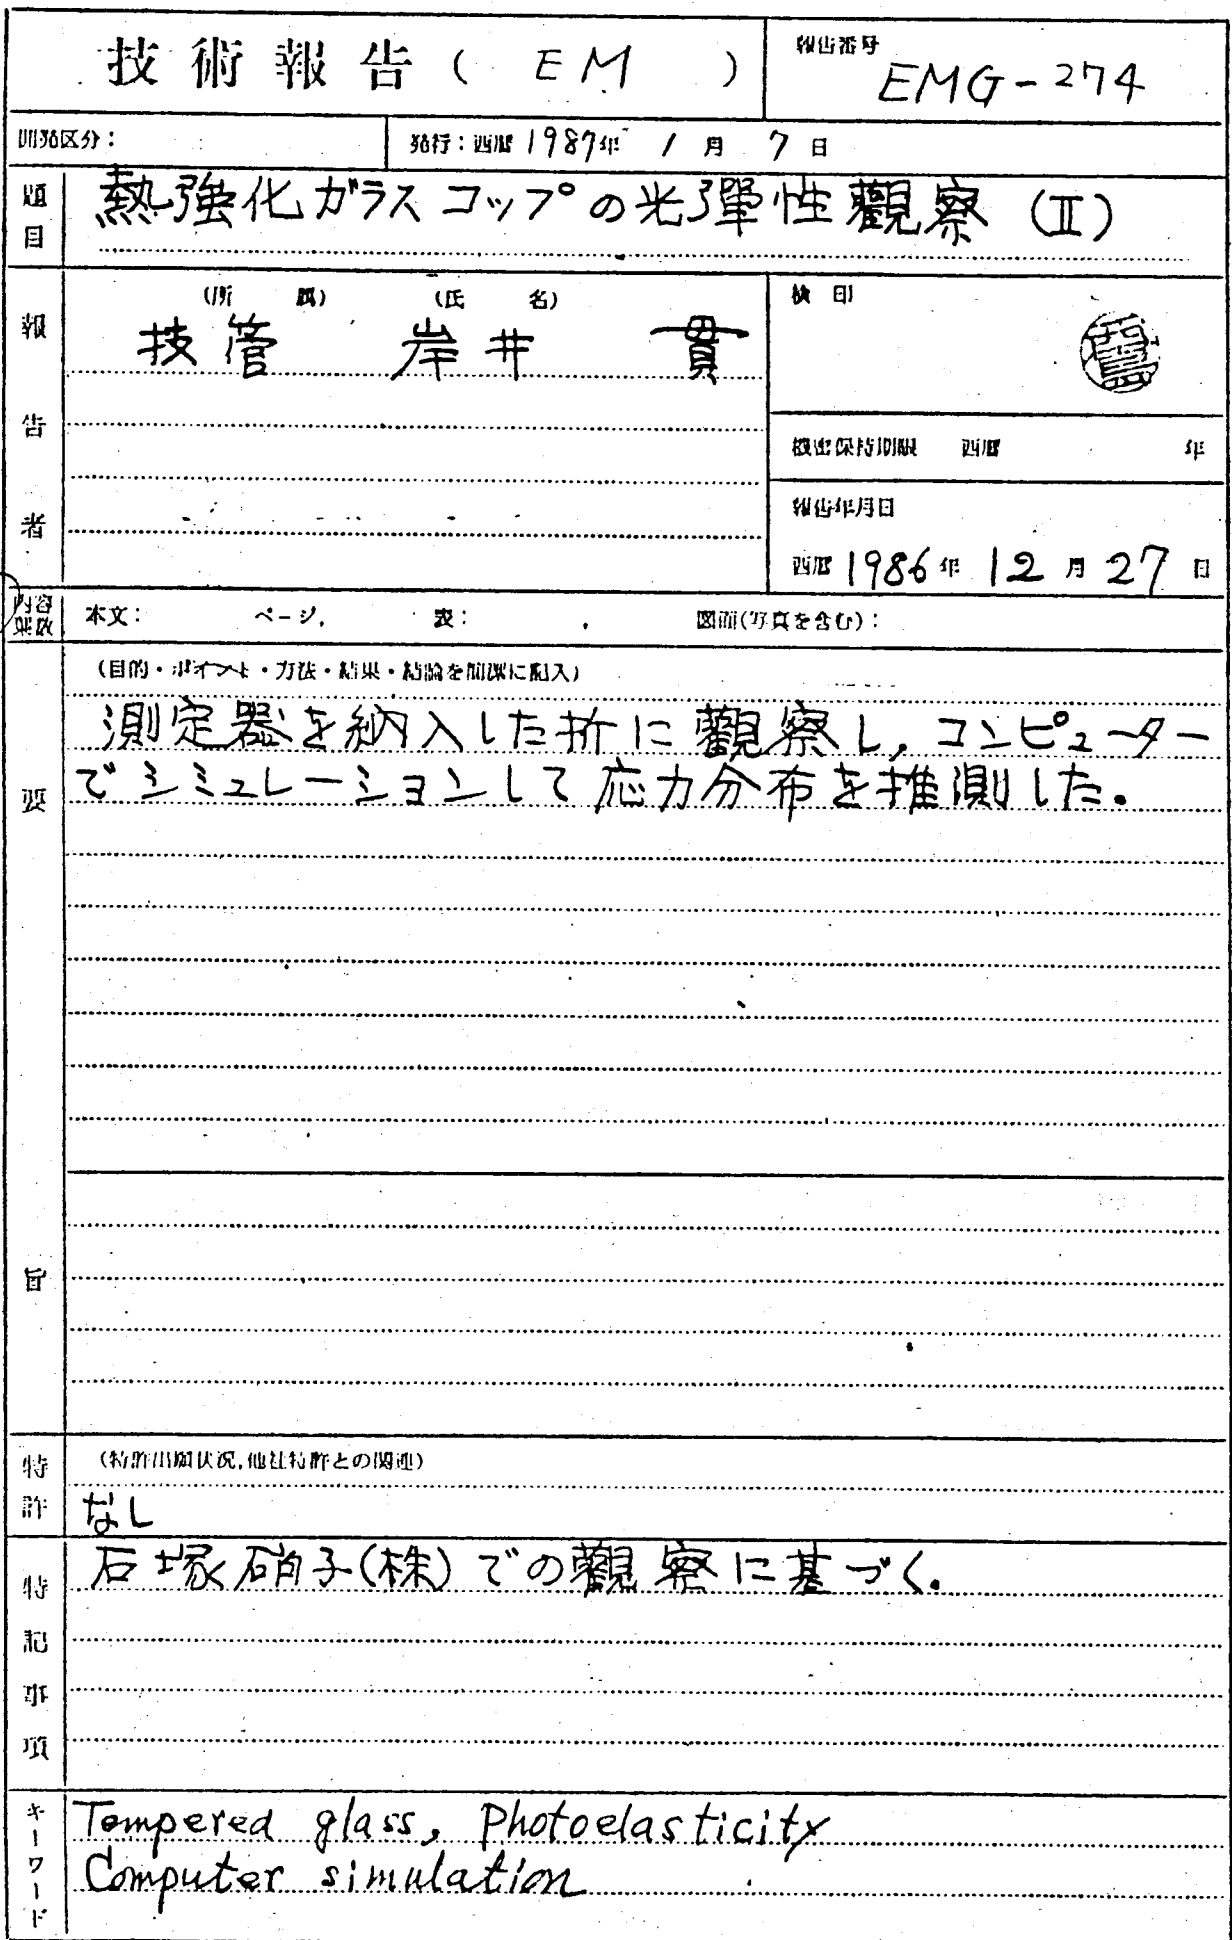 技術報告( EM )
報告番号
EMG-274
開発区分:
発行:西暦 1987年 1月 7日
題目
熱強化ガラスコップの光彈性觀察 (II)
報告者
(所属) (氏名)
技管 岸井 貫
検印
機密保持期限 西暦 年
報告年月日
西暦 1986年 12月 27日
内容
葉数
本文: ページ, 表: , 図面(写真を含む):
要旨
(目的・ポイント・方法・結果・結論を簡潔に記入)
測定器を納入した折に觀察し, コンピューター
でシミュレーションして応力分布を推測した.
特許
(特許出願状況,他社特許との関連)
なし
特記事項
石塚硝子(株)での觀察に基づく.
キーワード
Tempered glass, Photoelasticity
Computer simulation